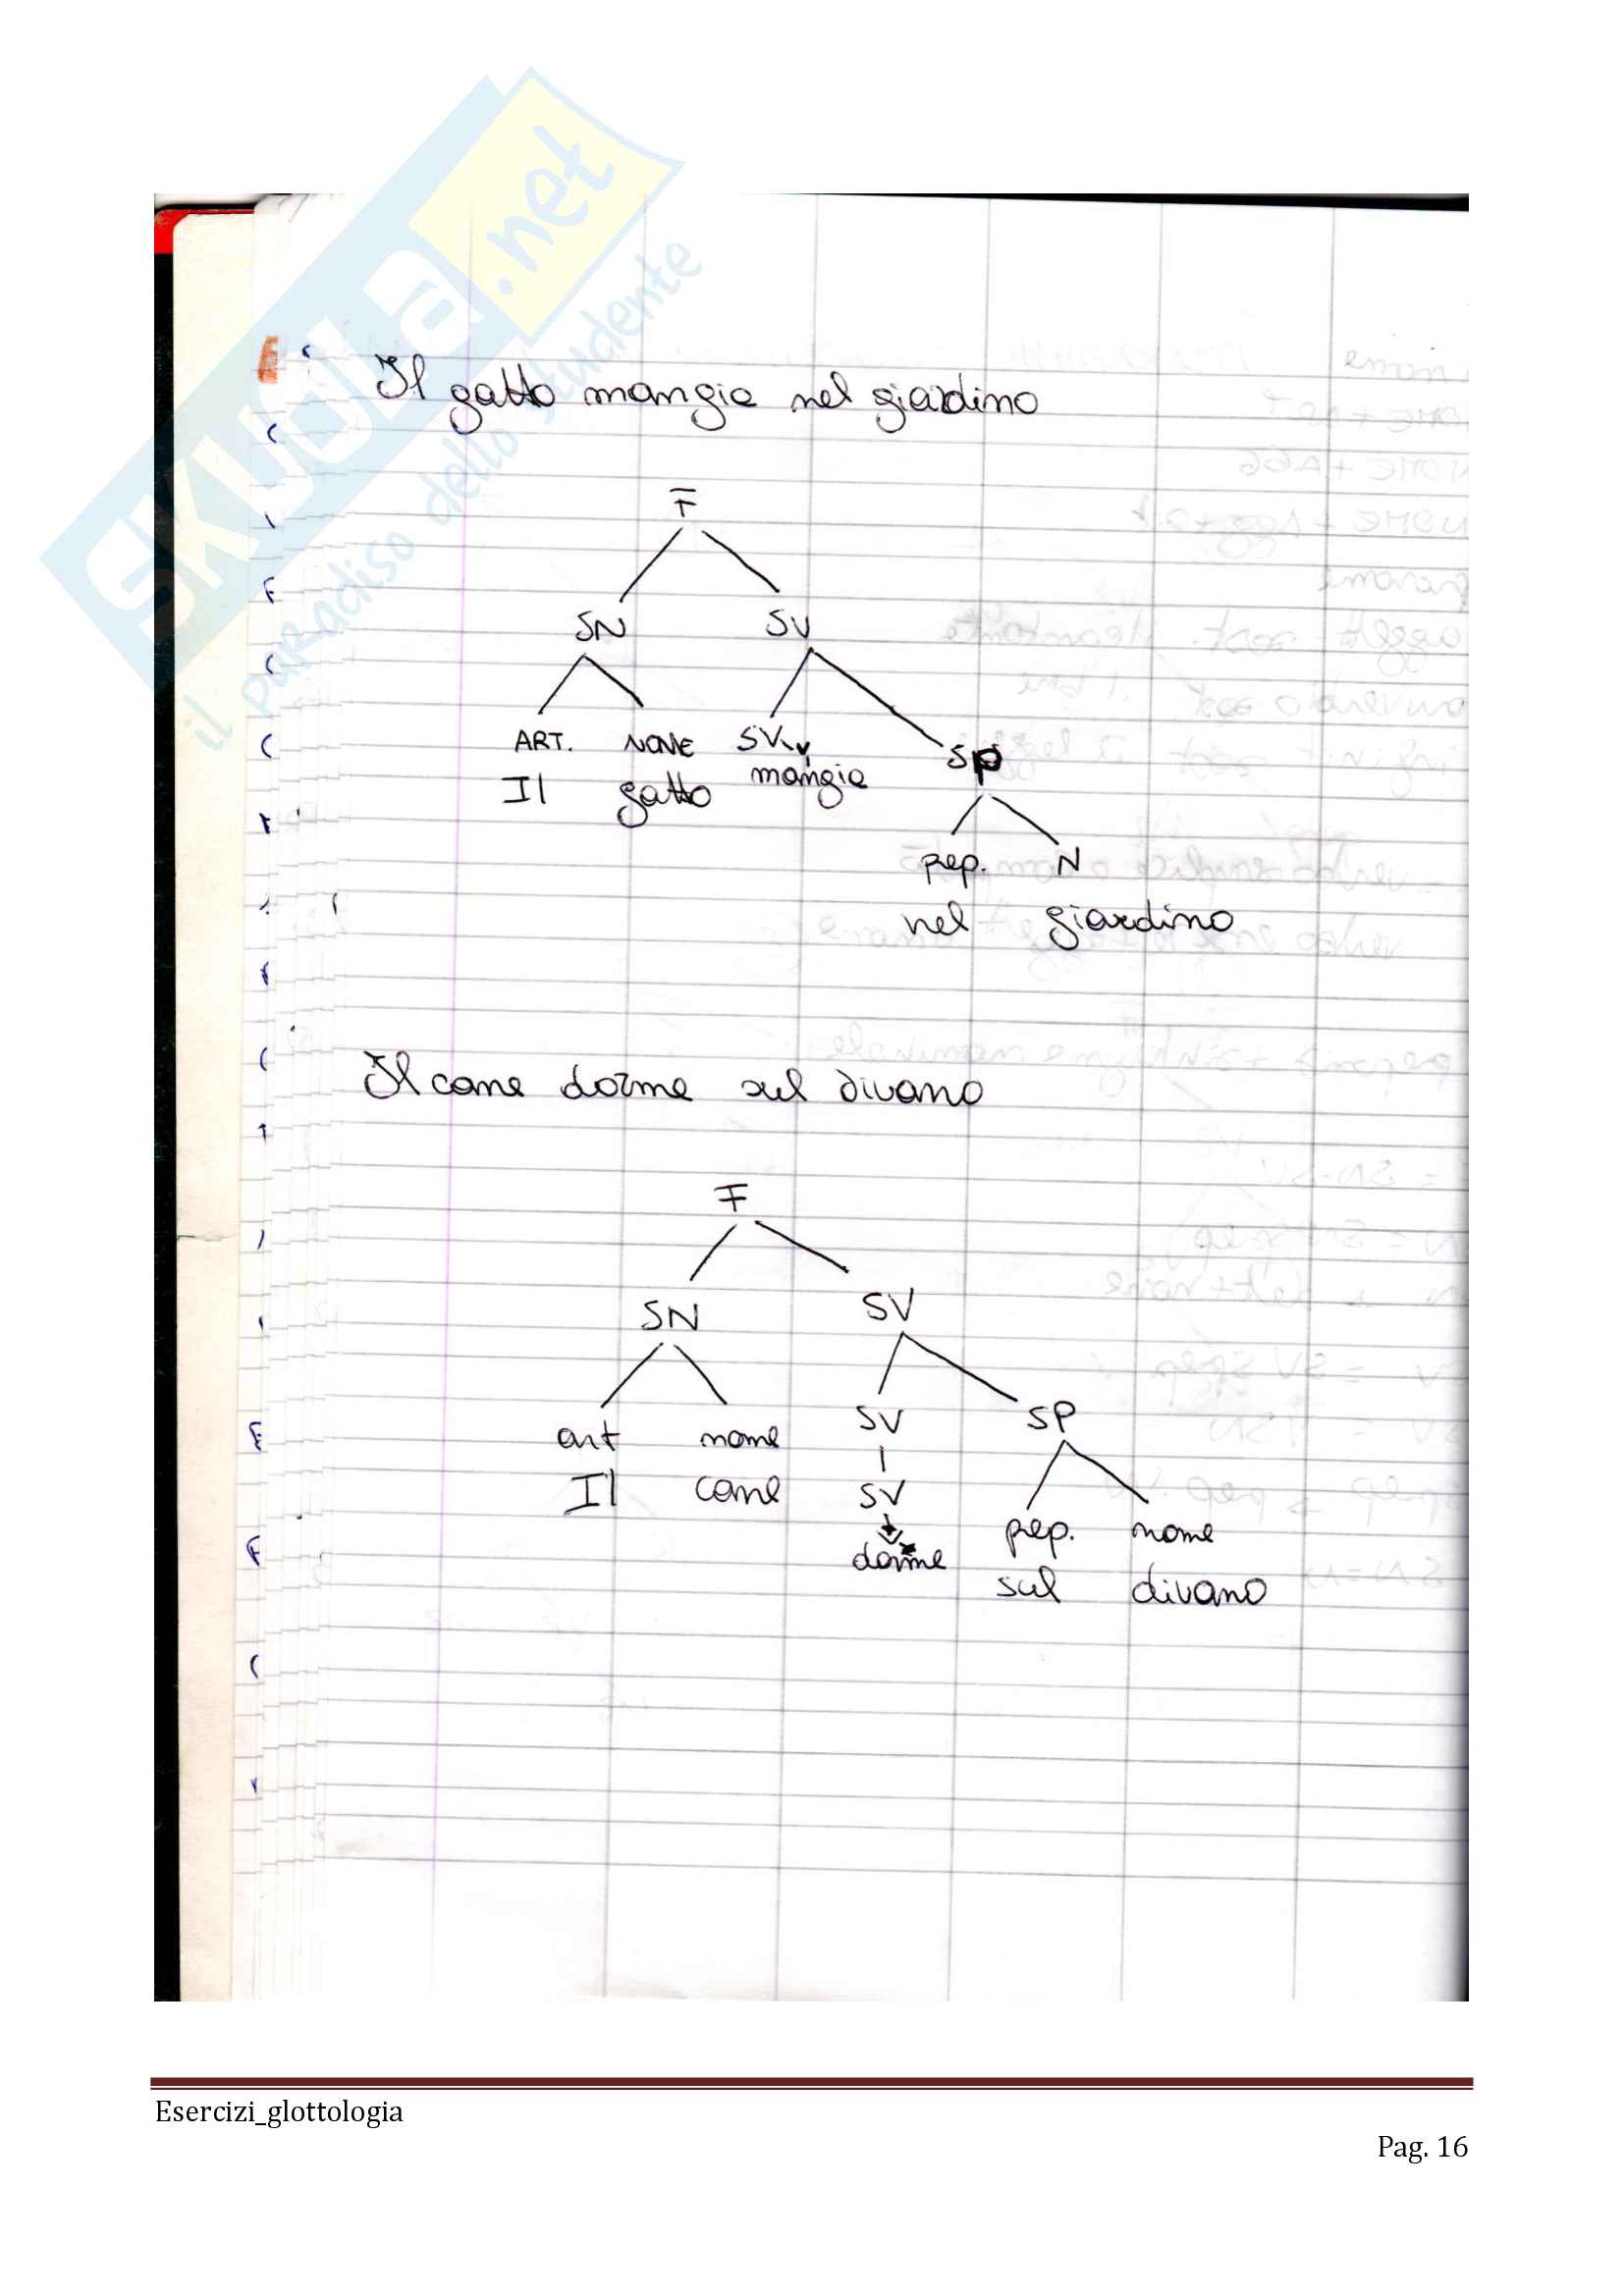 SKUOLA.net
il paradiso dello studente
Il gatto mangia nel giardino
F
SN SV
ART. NOME SV V SP
Il gatto mangia
prep. N
nel giardino
Il cane dorme sul divano
F
SN SV
art nome SV SP
Il cane SV
prep. nome
dorme
sul divano
Esercizi_glottologia
Pag. 16